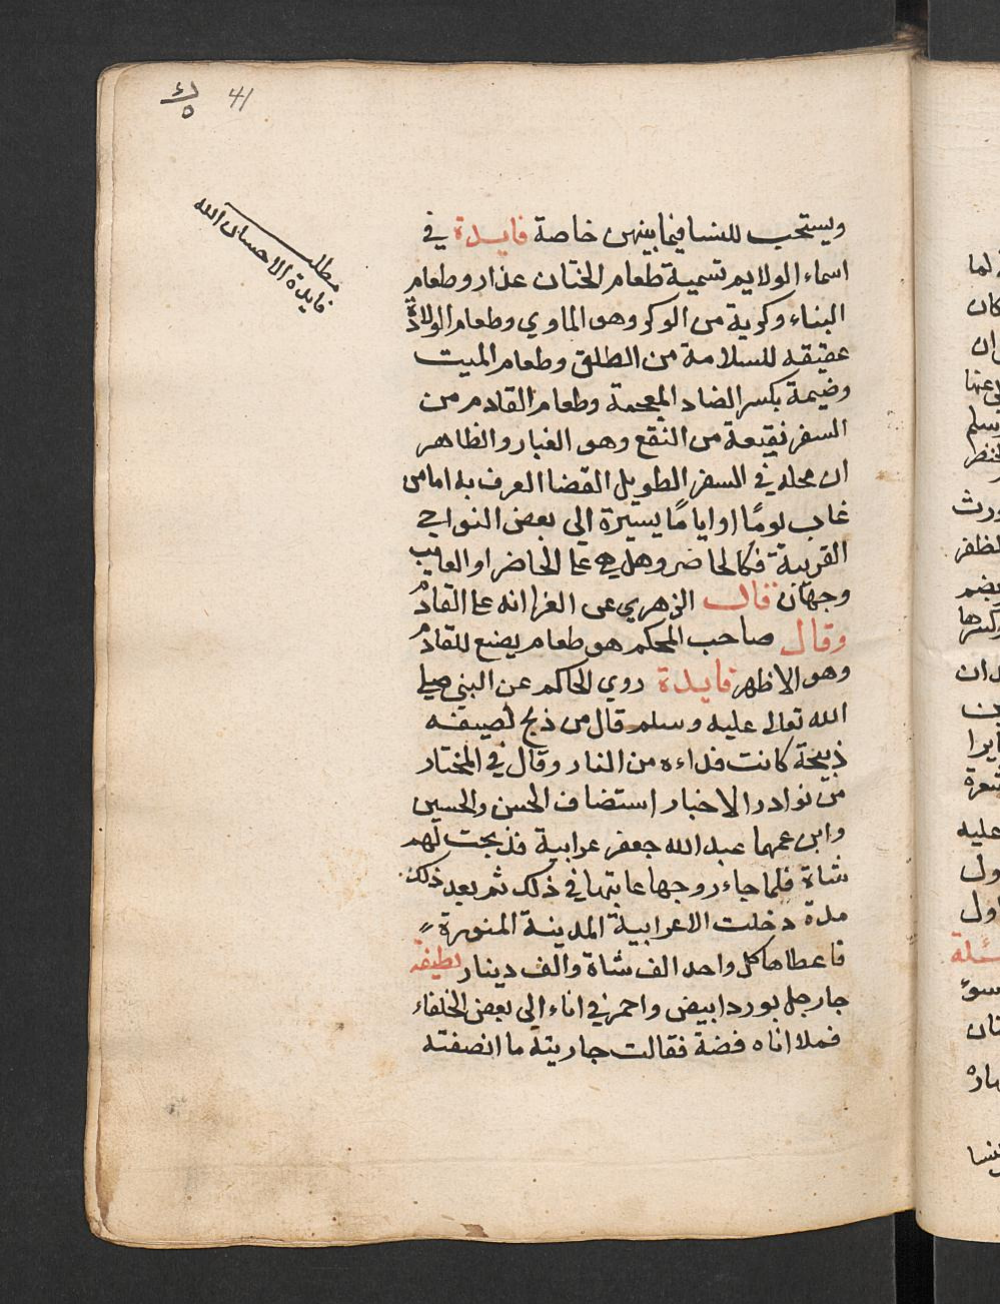 41
٤١
٥
مطلب
فايدة الاحسان لله
ويستحب للنسا فيما بينهن خاصة فايدة في
اسماء الولايم تسمية طعام الختان عذار وطعام
البناء وكرية من الوكر وهو الماوي وطعام الولادة
عقيقه للسلامة من الطلق وطعام الميت
وضيمة بكسر الضاد المعجمة وطعام القادم من
السفر نقيعة من النقع وهو الغبار والظاهر
ان محله في السفر الطويل لقضا العرف به اما من
غاب يومًا او ايامًا يسيرة الى بعض النواحي
القريبة فكالحاضر وهل هي على الحاضر او الغايب
وجهان قال الزهري عن الفرا انه على القادم
وقال صاحب المحكم هو طعام يصنع للقادم
وهو الاظهر فايدة روي الحاكم عن النبي صلى
الله تعالى عليه وسلم قال من ذبح لضيفه
ذبيحة كانت فداءه من النار وقال في المختار
من نوادر الاخبار استضاف الحسن والحسين
وابن عمهما عبد الله جعفر عرابية فذبحت لهم
شاة فلما جاء زوجها عاتبها في ذلك ثم بعد ذلك
مدة دخلت الاعرابية المدينة المنورة
فاعطاها كل واحد الف شاة والف دينار لطيفة
جا رجل بورد ابيض واحمر في اناء الى بعض الخلفاء
فملا اناه فضة فقالت جاريته ما انصفته